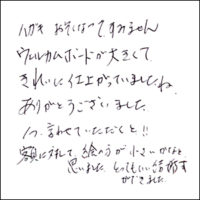 ハガキ おそくなってすみません
ウェルカムボードが大きくて
きれいに仕上がっていましたね
ありがとうございました
1つ言わせていただくと!!
額に対して、絵の方が小さいかなと
思いました。とってもいい結婚式
ができました